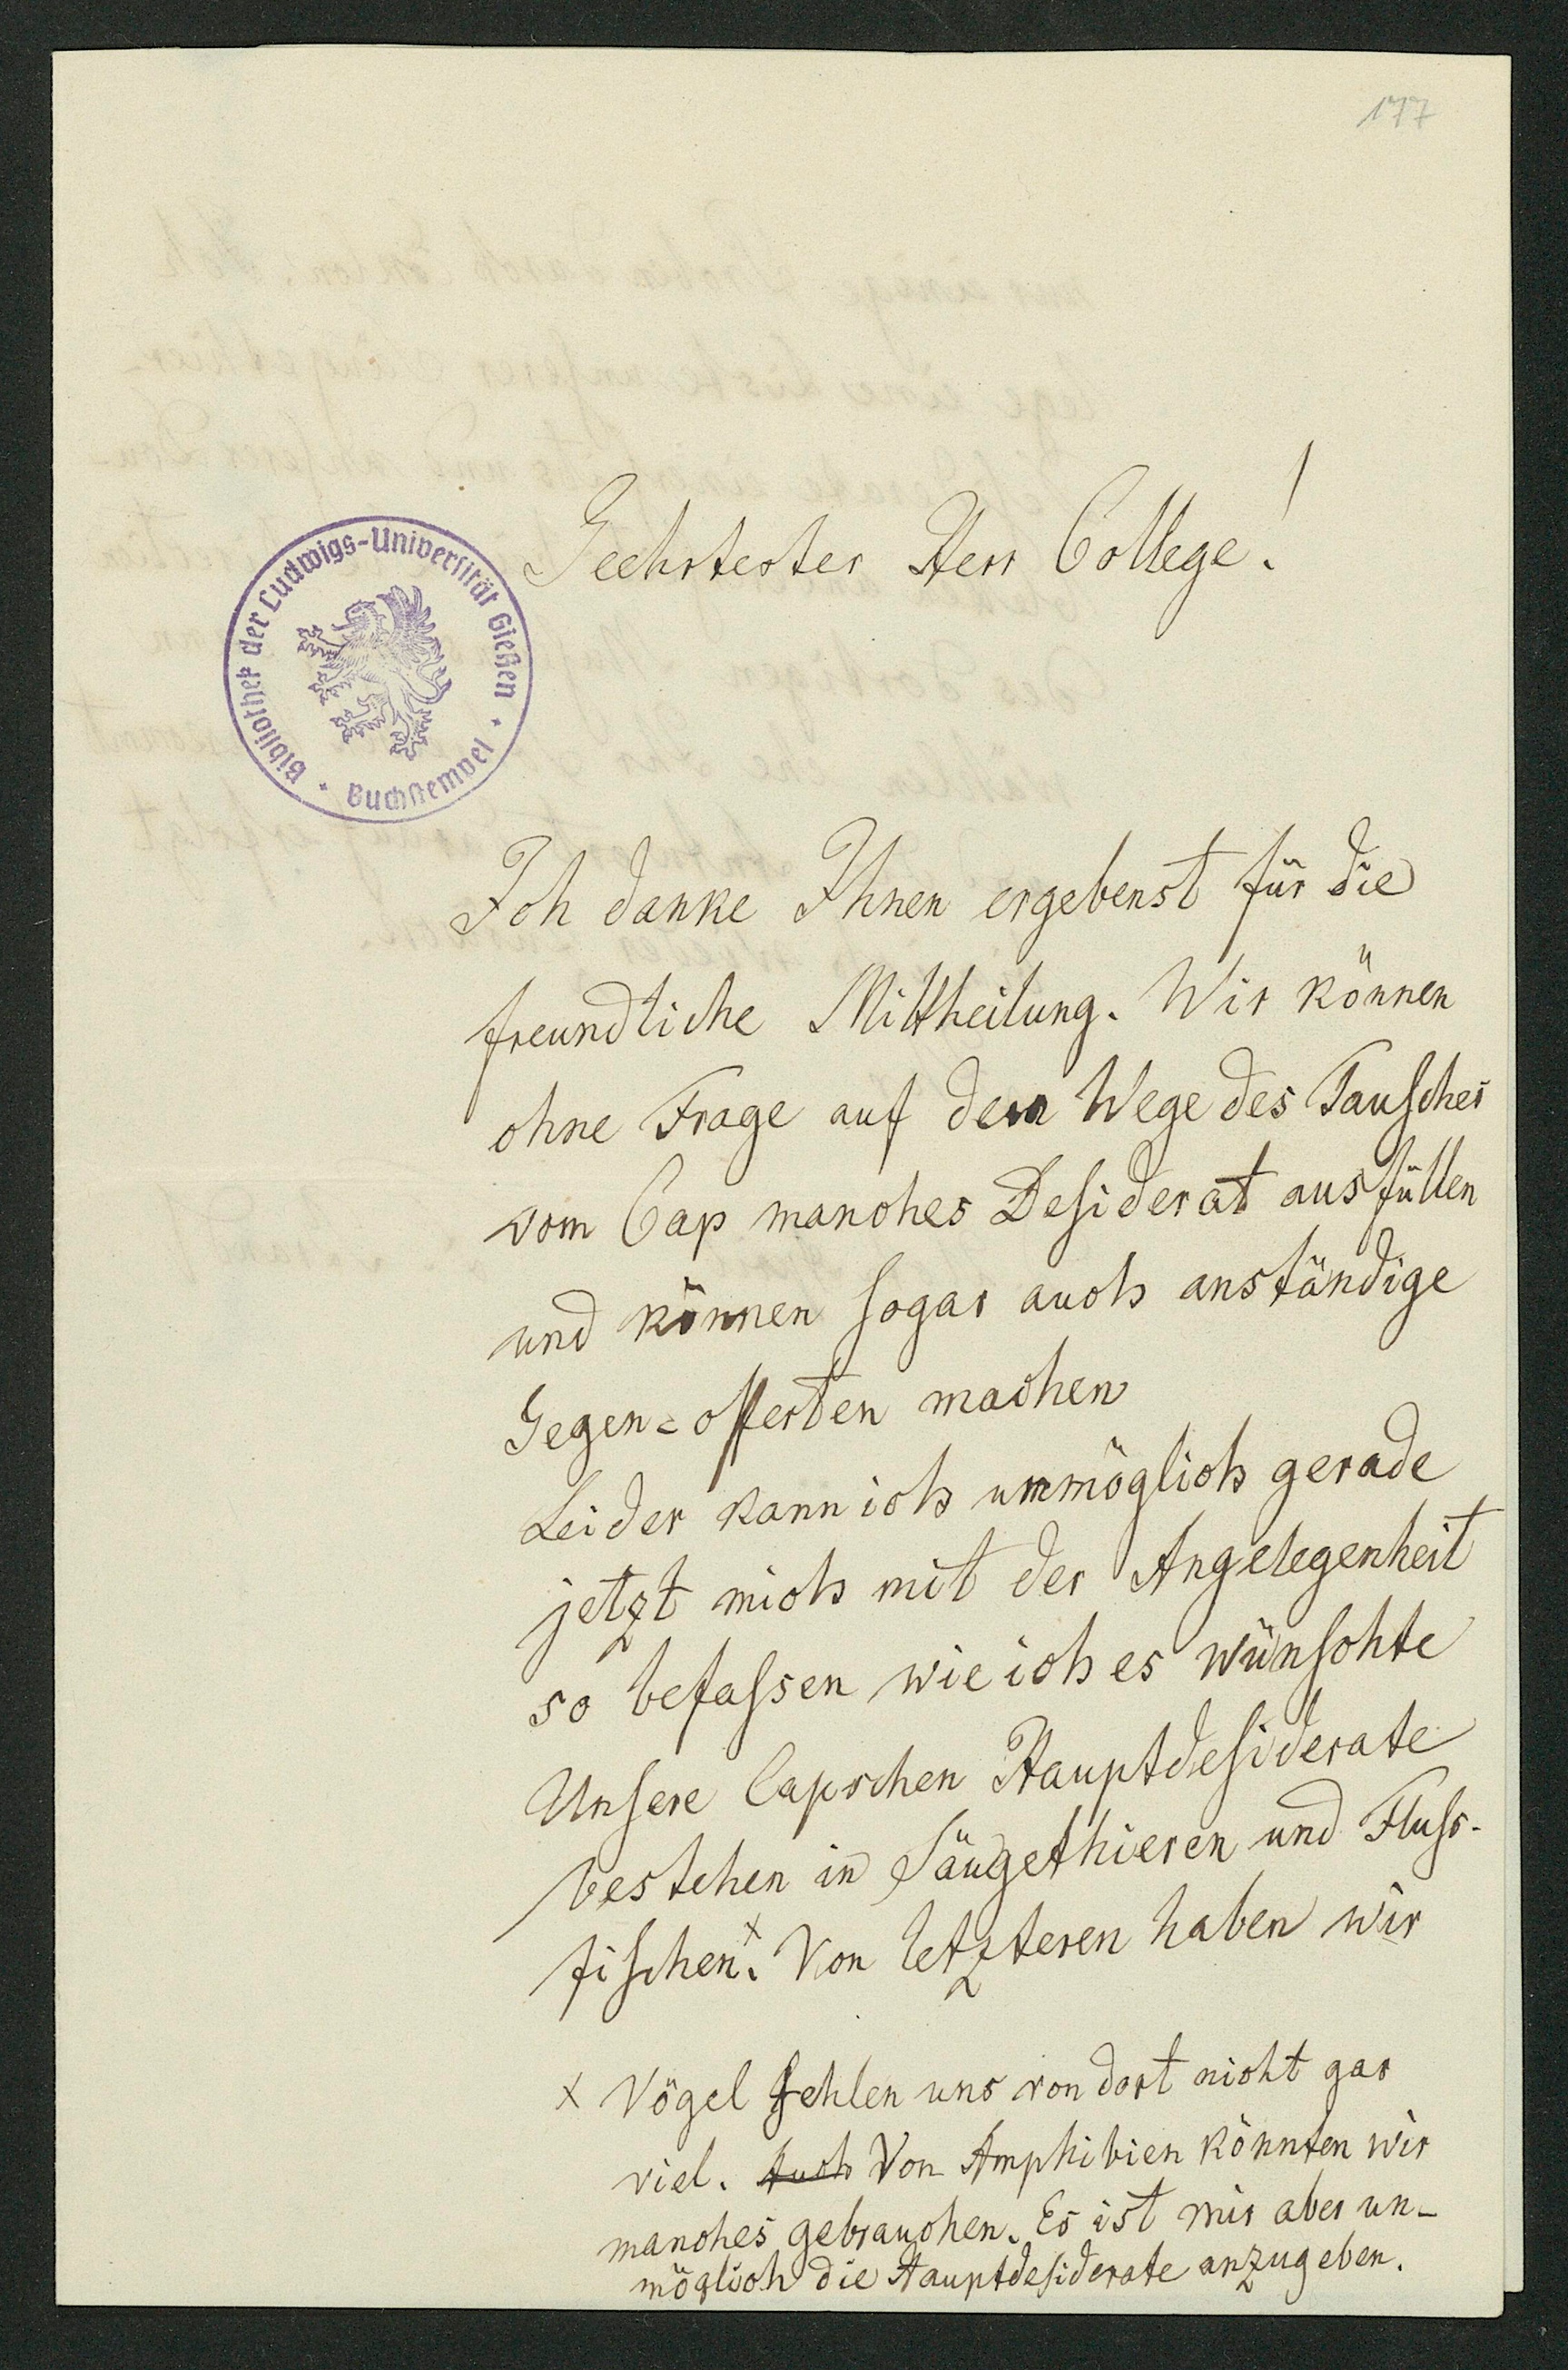 177
Geehrtester Herr College!
Bibliothek der Ludwigs-Universität Gießen
* Buchstempel *
Ich danke Ihnen ergebenst für die
freundliche Mittheilung. Wir können
ohne Frage auf dem Wege des Tausches
vom Cap manches Desiderat ausfüllen
und können sogar auch anständige
Gegen=offerten machen
Leider kann ich unmöglich gerade
jetzt mich mit der Angelegenheit
so befassen wie ich es wünschte
Unsere Capschen Hauptdesiderate
bestehen in Säugethieren und Fluss-
fischen.x Von letzteren haben wir
x Vögel fehlen uns von dort nicht gar
viel. Auch Von Amphibien könnten wir
manches gebrauchen. Es ist mir aber un-
möglich die Hauptdesiderate anzugeben.